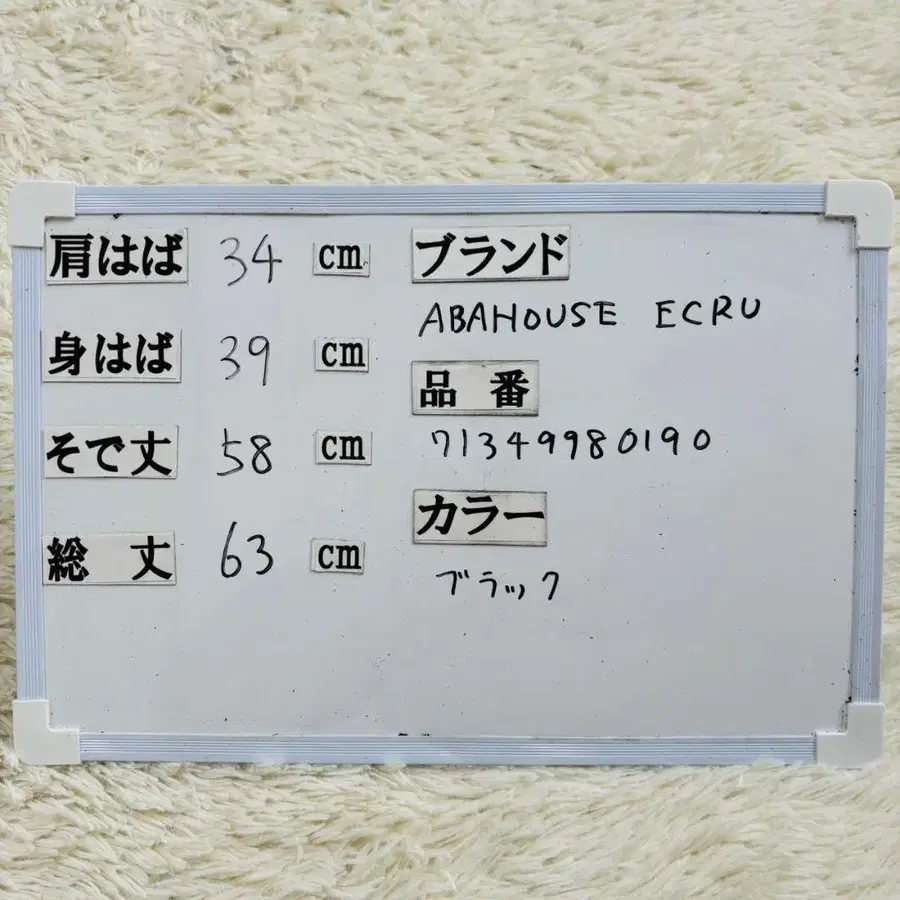 肩はば 34 cm
身はば 39 cm
そで丈 58 cm
総 丈 63 cm
ブランド
ABAHOUSE ECRU
品 番
71349980190
カラー
ブラック